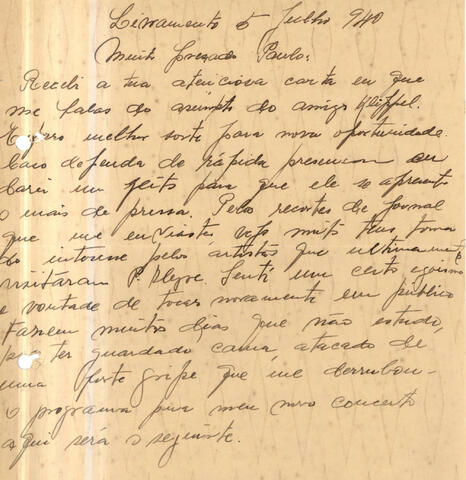 Livramento 5 Julho 940
Muito prezado Paulo:
Recebi a tua atenciosa carta em que
me falas do assumpto do amigo Klippel.
Espero melhor sorte para nova oportunidade.
Caso dependa de rápida presença eu
darei um geito para que ele se apresente
o mais de pressa. Pelo recortes de jornal
que me enviastes vejo muito teus toma
do interesse pelos artistas que ultimamente
visitaram P. Alegre. Senti um certo egoismo
e vontade de tocar novamente em público
Fazem muitos dias que não estudo,
por ter guardado cama atacado de
uma forte gripe que me derrubou-
O programa para meu novo concerto
aqui será o seguinte.